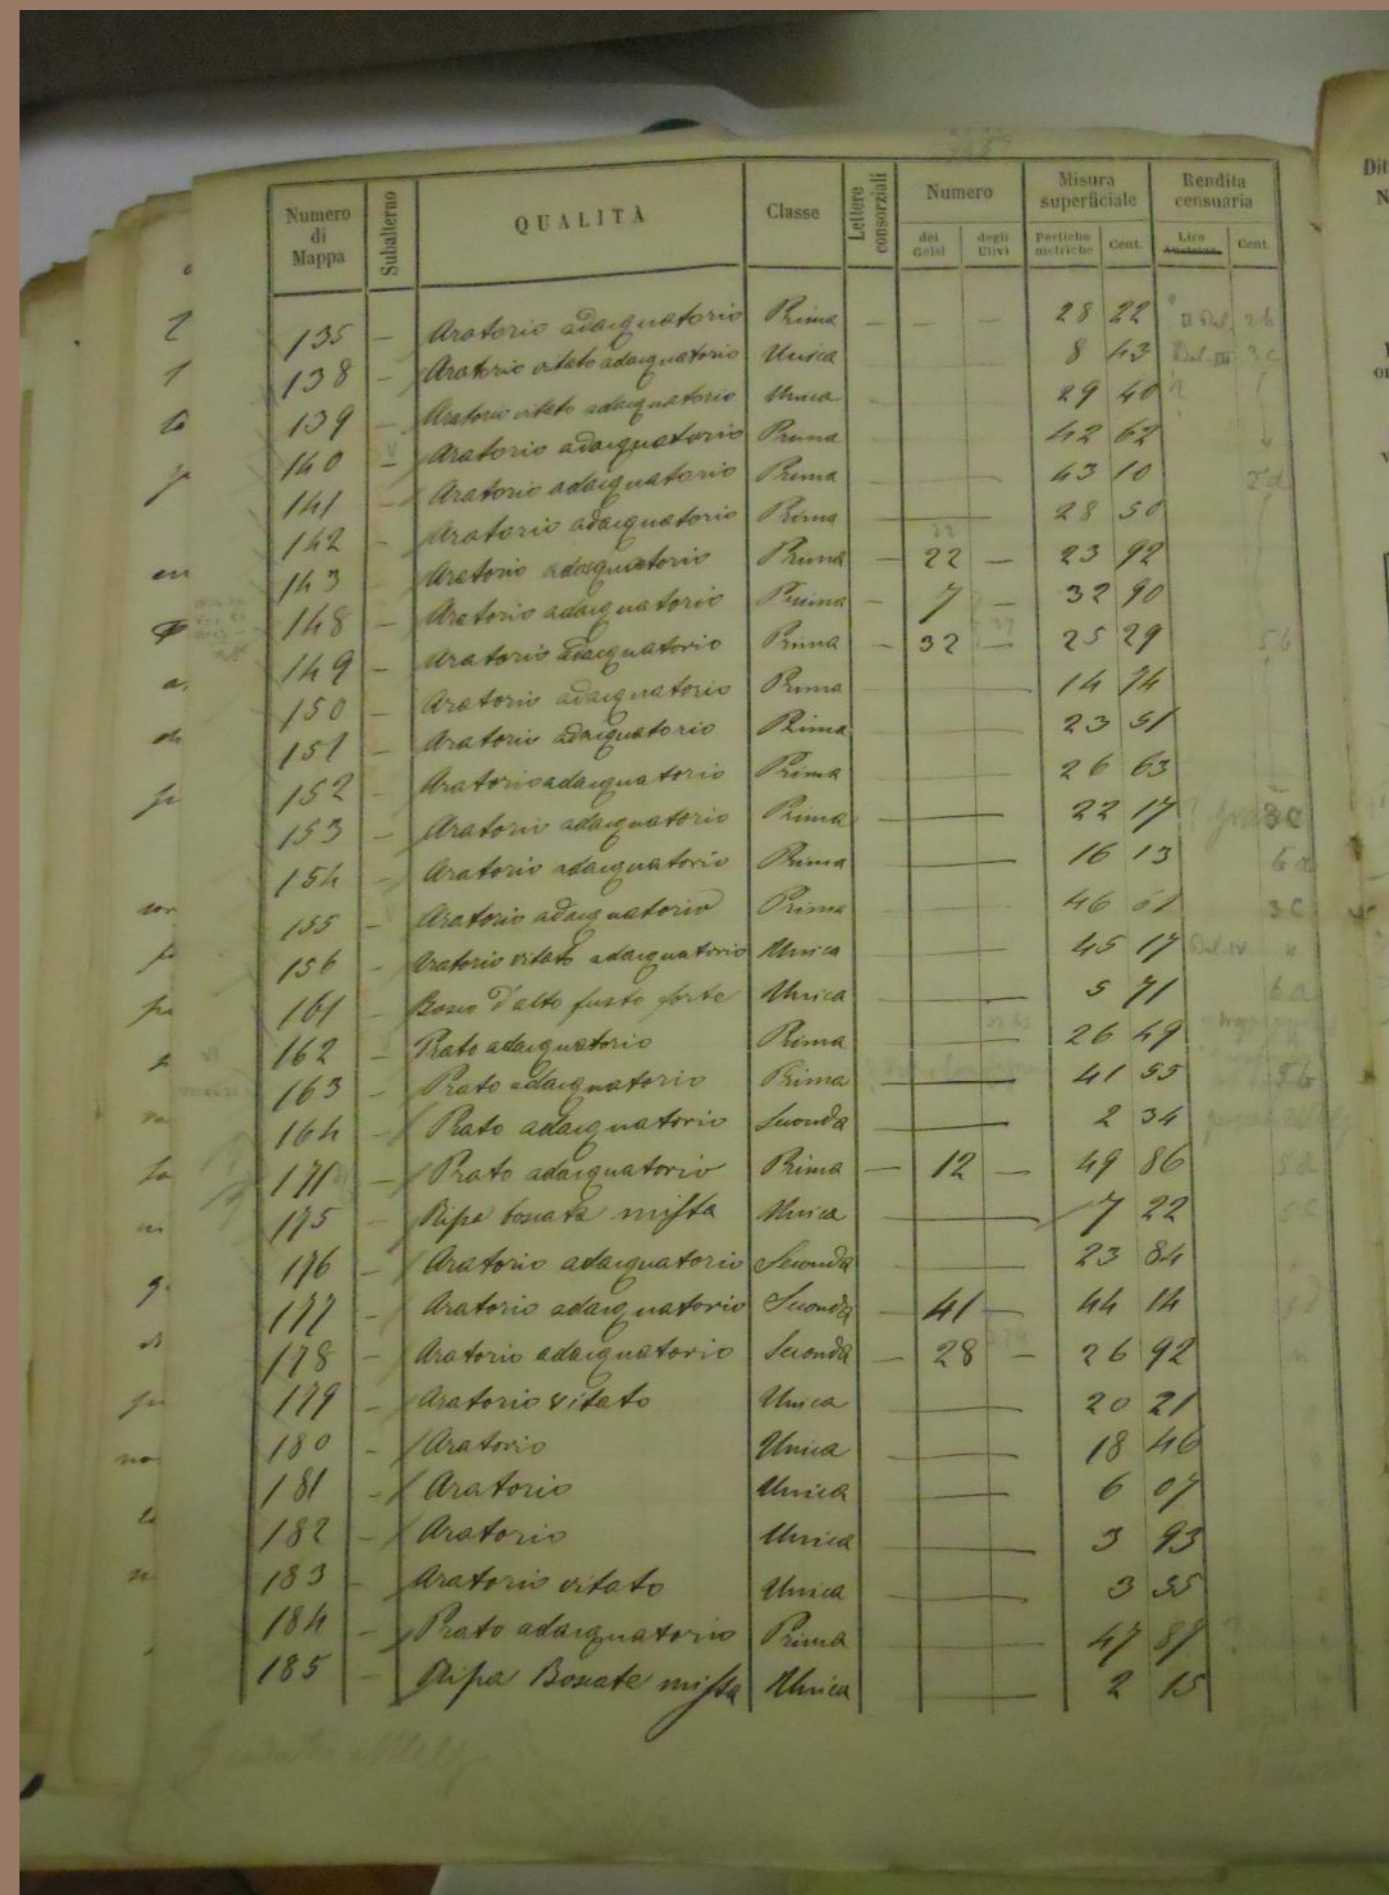 Numero di Mappa Subalterno QUALITÀ Classe Lettere consorziali Numero Misura superficiale Rendita censuaria
dei Gelsi degli Ulivi Pertiche metriche Cent. Lire Austriache Cent.
135 – Aratorio adacquatorio Prima – – – 28 22 26
138 – Aratorio vitato adacquatorio Unica 8 43 3c
139 – Aratorio vitato adacquatorio Unica – 29 40
140 – Aratorio adacquatorio Prima – 42 62
141 – Aratorio adacquatorio Prima – 43 10
142 – Aratorio adacquatorio Prima – 28 50
143 – Aratorio adacquatorio Prima – 22 – 23 92
148 – Aratorio adacquatorio Prima – 7 – 32 90
149 – Aratorio adacquatorio Prima – 32 – 25 29 5b
150 – Aratorio adacquatorio Prima – 14 74
151 – Aratorio adacquatorio Prima – 23 51
152 – Aratorio adacquatorio Prima – 26 63
153 – Aratorio adacquatorio Prima – 22 17 3c
154 – Aratorio adacquatorio Prima – 16 13 6a
155 – Aratorio adacquatorio Prima – 46 61 3c
156 – Aratorio vitato adacquatorio Unica – 45 17
161 – Bosco d'alto fusto forte Unica – 5 71 6a
162 – Prato adacquatorio Prima – 26 49
163 – Prato adacquatorio Prima – 41 55 5b
164 – Prato adacquatorio Seconda – 2 34
171 – Prato adacquatorio Prima – 12 – 49 86
175 – Ripa boscata mista Unica – 7 22
176 – Aratorio adacquatorio Seconda – 23 84
177 – Aratorio adacquatorio Seconda – 41 – 44 14
178 – Aratorio adacquatorio Seconda – 28 – 26 92
179 – Aratorio vitato Unica – 20 21
180 – Aratorio Unica – 18 46
181 – Aratorio Unica – 6 07
182 – Aratorio Unica – 3 93
183 – Aratorio vitato Unica – 3 35
184 – Prato adacquatorio Prima – 47 87
185 – Ripa Boscate mista Unica – 2 15